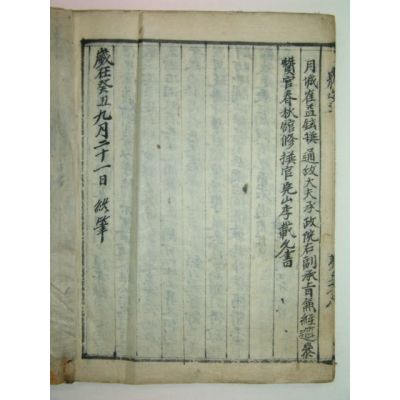 月城崔益鉉撰通政大夫承政院右副承旨兼經筵參
贊官春秋館修撰官完山李載允書
歲在癸丑九月二十一日 終筆